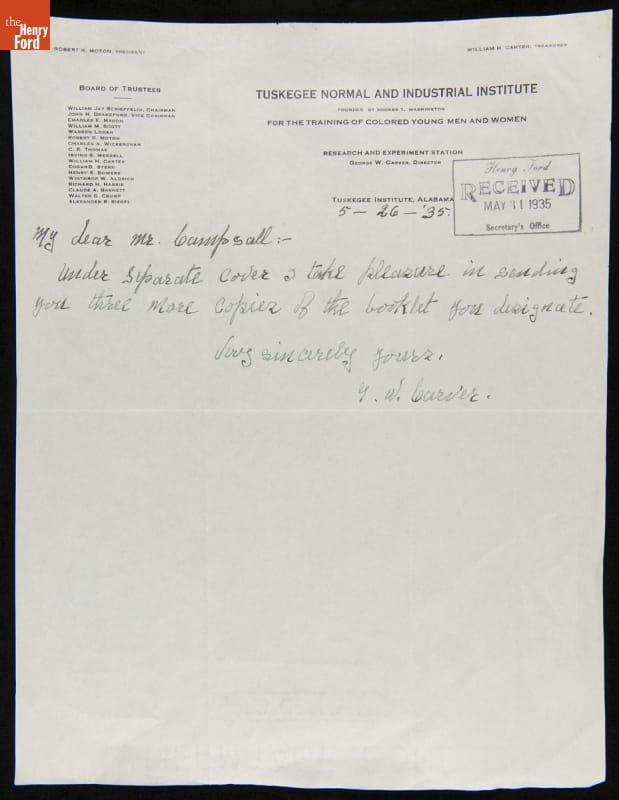 the
Henry
Ford
ROBERT R. MOTON, PRESIDENT
WILLIAM H. CARTER, TREASURER
BOARD OF TRUSTEES
WILLIAM JAY SCHIEFFELIN, CHAIRMAN
JOHN H. DRAKEFORD, VICE CHAIRMAN
CHARLES E. MASON
WILLIAM M. SCOTT
WARREN LOGAN
ROBERT R. MOTON
CHARLES A. WICKERSHAM
C. E. THOMAS
IRVING S. MERRELL
WILLIAM H. CARTER
EDGAR B. STERN
HENRY K. BOWERS
WINTHROP W. ALDRICH
RICHARD H. HARRIS
CLAUDE A. BARNETT
WALTER G. CRUMP
ALEXANDER B. SIEGEL
TUSKEGEE NORMAL AND INDUSTRIAL INSTITUTE
FOUNDED BY BOOKER T. WASHINGTON
FOR THE TRAINING OF COLORED YOUNG MEN AND WOMEN
RESEARCH AND EXPERIMENT STATION
GEORGE W. CARVER, DIRECTOR
TUSKEGEE INSTITUTE, ALABAMA
Henry Ford
RECEIVED
MAY 31 1935
Secretary's Office
5-26-'35.
My dear Mr. Campsall:-
Under Separate cover I take pleasure in sending
you three more copies of the booklet you designate.
Very sincerely yours,
G. W. Carver.